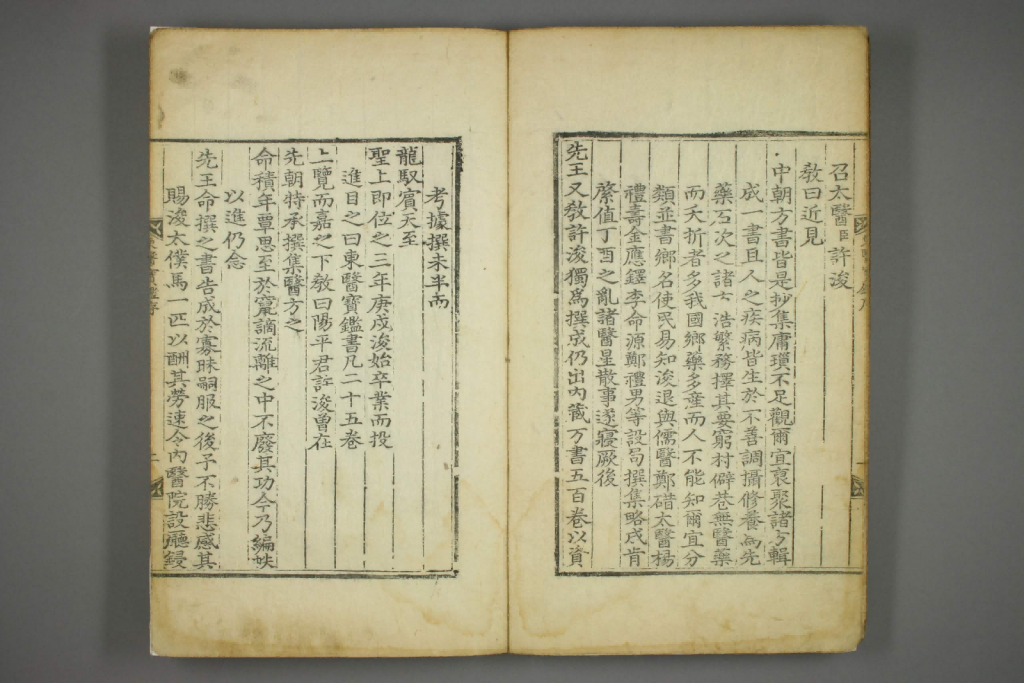 召太醫臣許浚
敎曰近見
中朝方書皆是抄集庸瑣不足觀爾宜裒聚諸方輯
成一書且人之疾病皆生於不善調攝修養爲先
藥石次之諸方浩繁務擇其要窮村僻巷無醫藥
而夭折者多我國鄕藥多産而人不能知爾宜分
類並書鄕名使民易知浚退與儒醫鄭碏太醫楊
禮壽金應鐸李命源鄭禮男等設局撰集略成肯
綮値丁酉之亂諸醫星散事遂寢厥後
先王又敎許浚獨爲撰成仍出內藏方書五百卷以資
考據撰未半而
龍馭賓天至
聖上即位之三年庚戌浚始卒業而投
進目之曰東醫寶鑑書凡二十五卷
上覽而嘉之下敎曰陽平君許浚曾在
先朝特承撰集醫方之
命積年覃思至於竄謫流離之中不廢其功今乃編帙
以進仍念
先王命撰之書告成於寡昧嗣服之後予不勝悲感其
賜浚太僕馬一匹以酬其勞速令內醫院設廳鋟